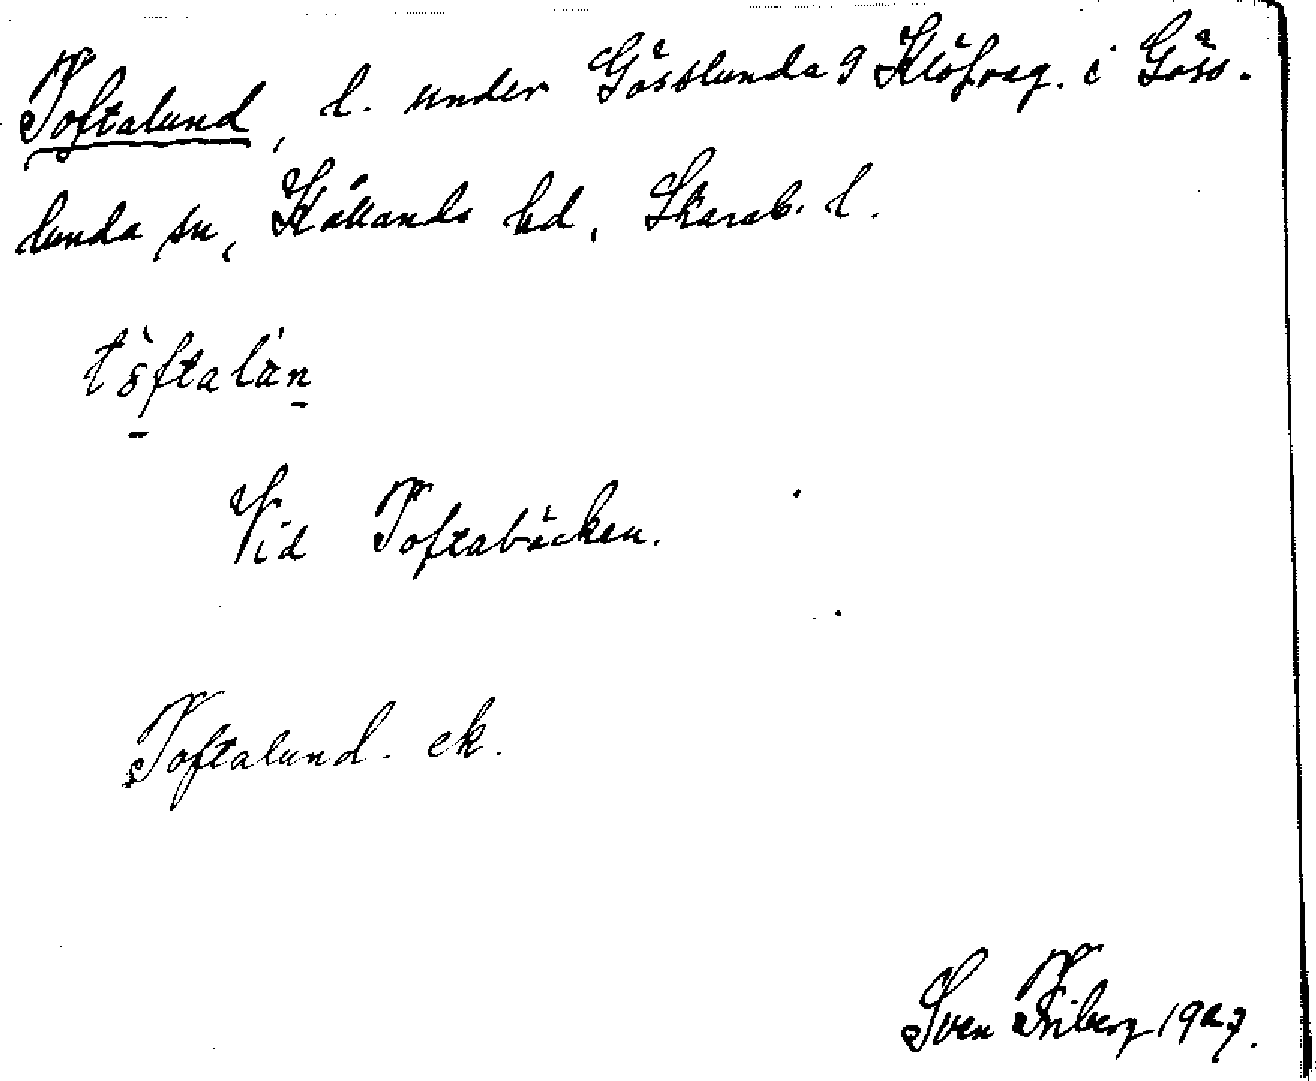 Toftalund, l. under Gösslunda 9 Klöfveg. i Göss-
lunda sn, Kållands hd, Skarab. l.
töftalän
Vid Toftabäcken.
Toftalund. ek.
Sven Friberg 1927.